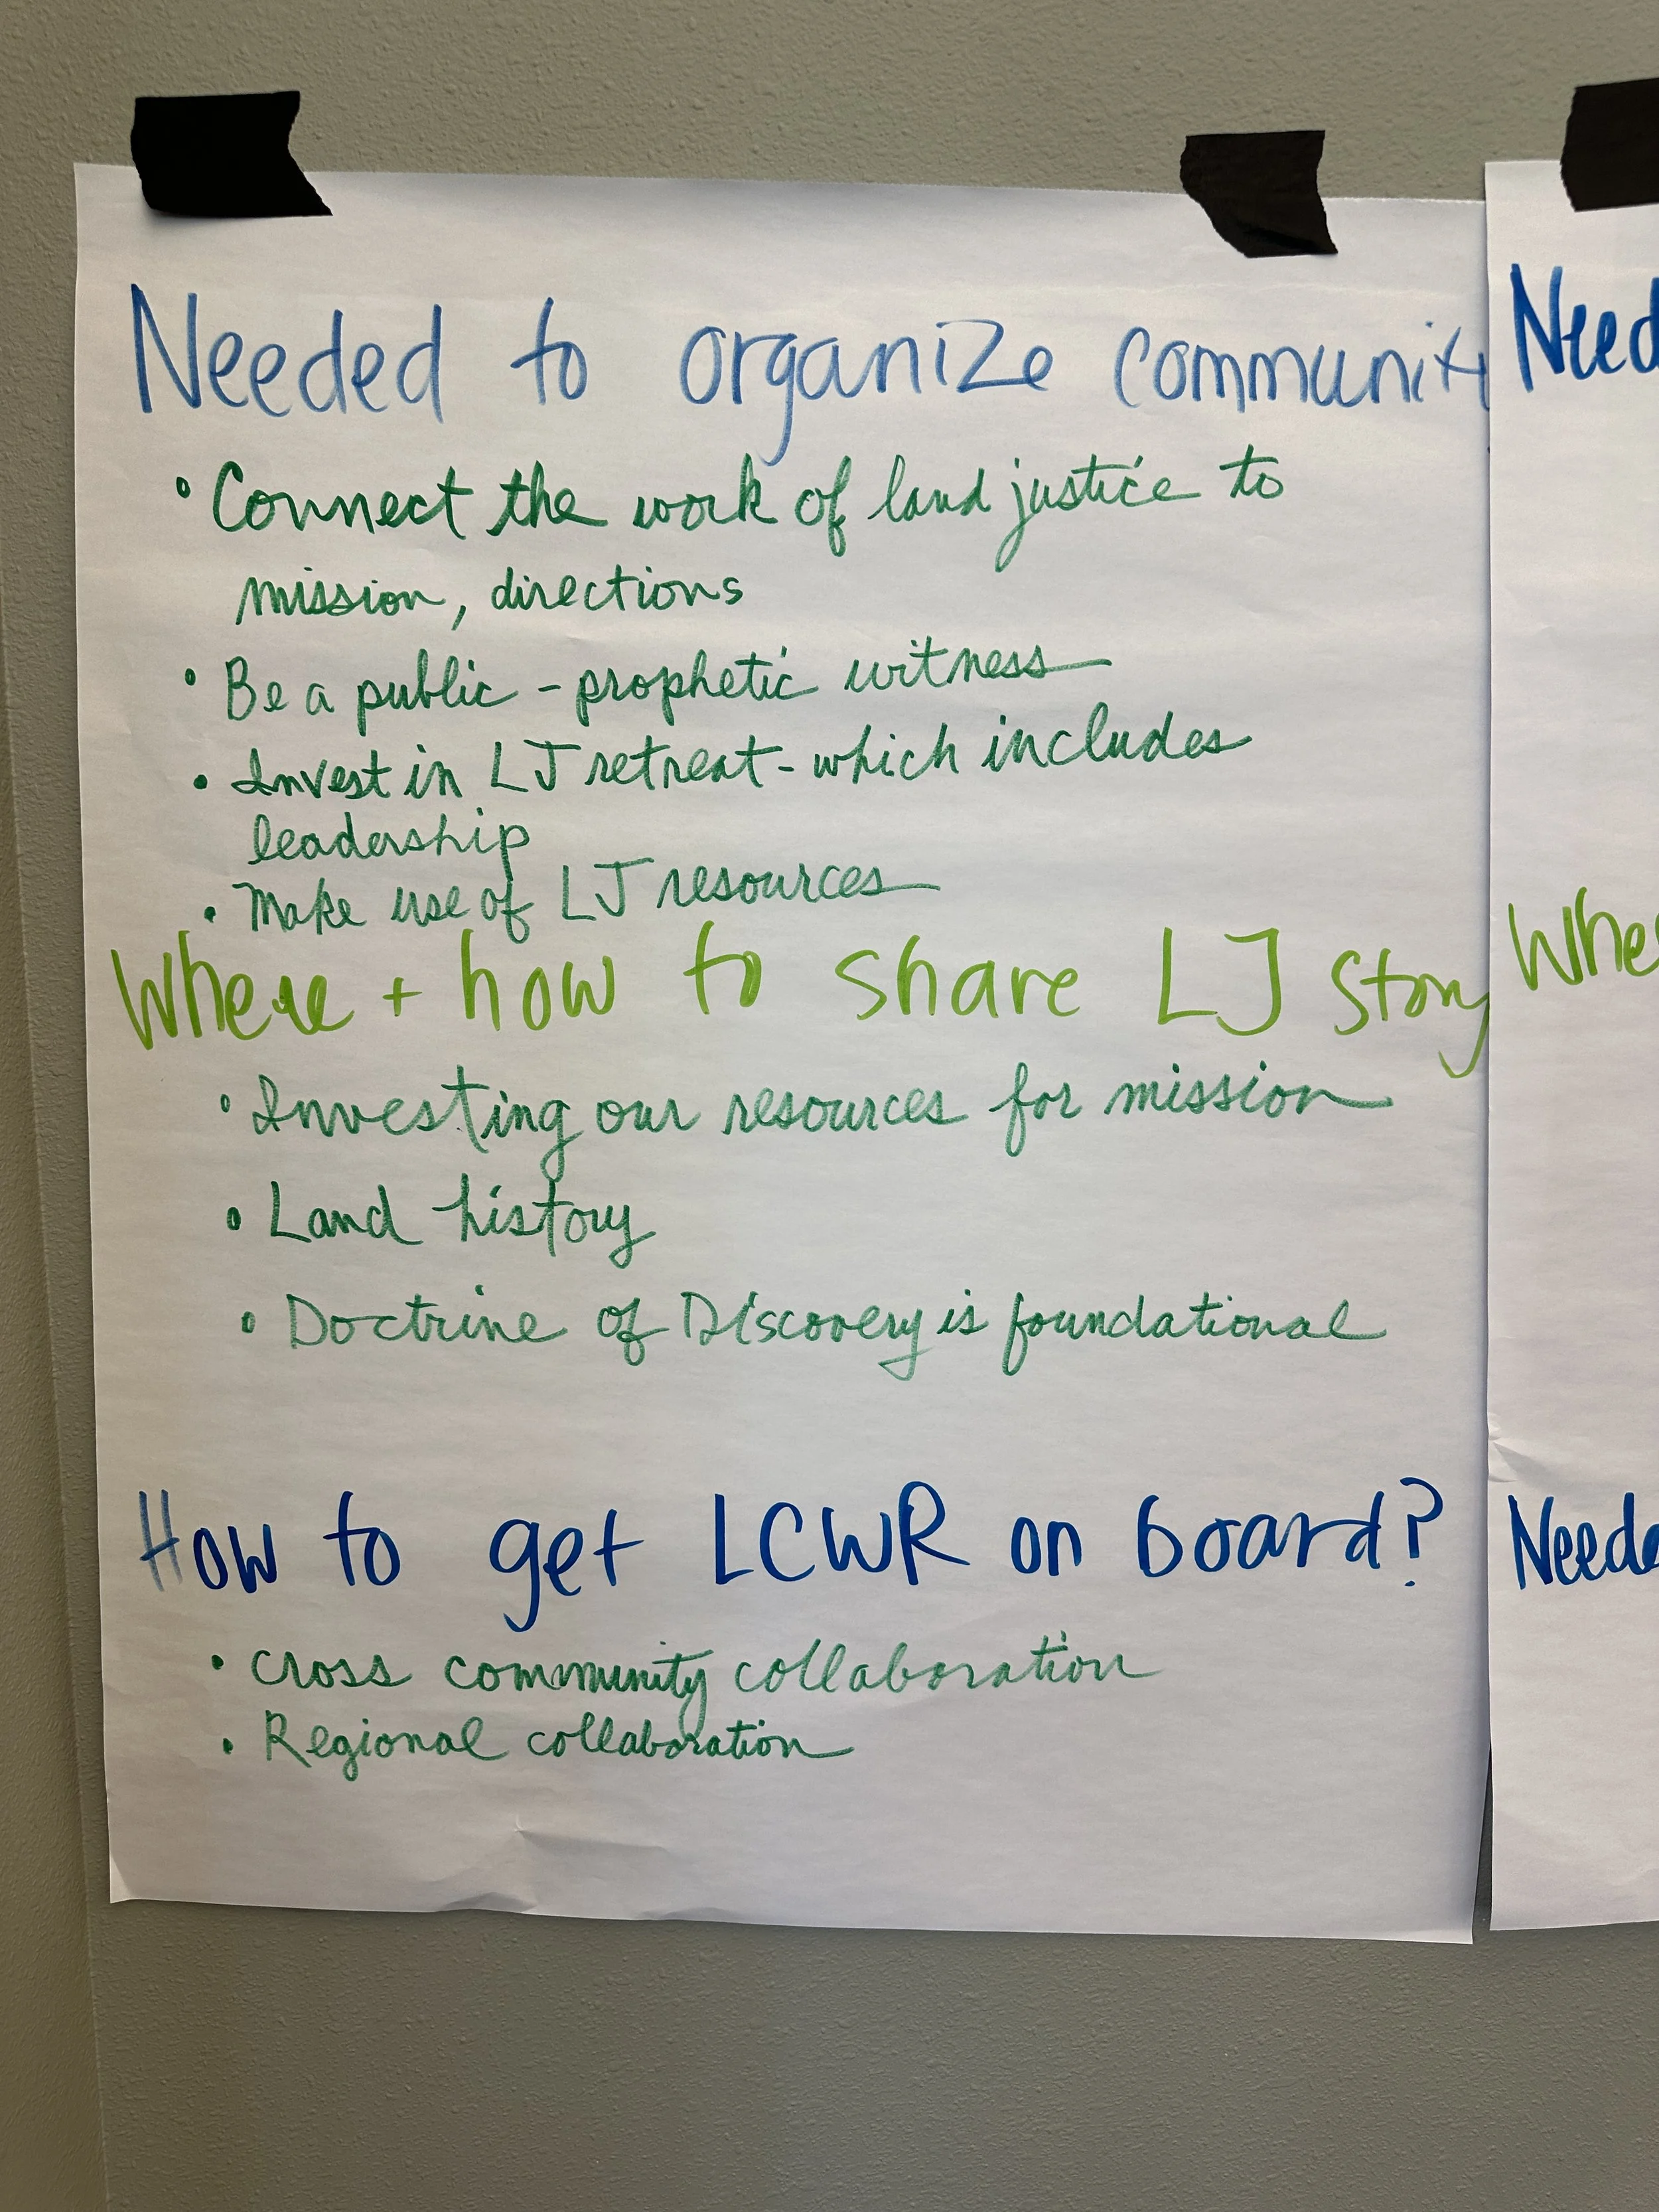 Needed to organize community
• Connect the work of land justice to
mission, directions
• Be a public - prophetic witness
• Invest in LJ retreat - which includes
leadership
• Make use of LJ resources
Where + how to share LJ story
• Investing our resources for mission
• Land history
• Doctrine of Discovery is foundational
How to get LCWR on board?
• cross community collaboration
• Regional collaboration
Need
Whe
Neede